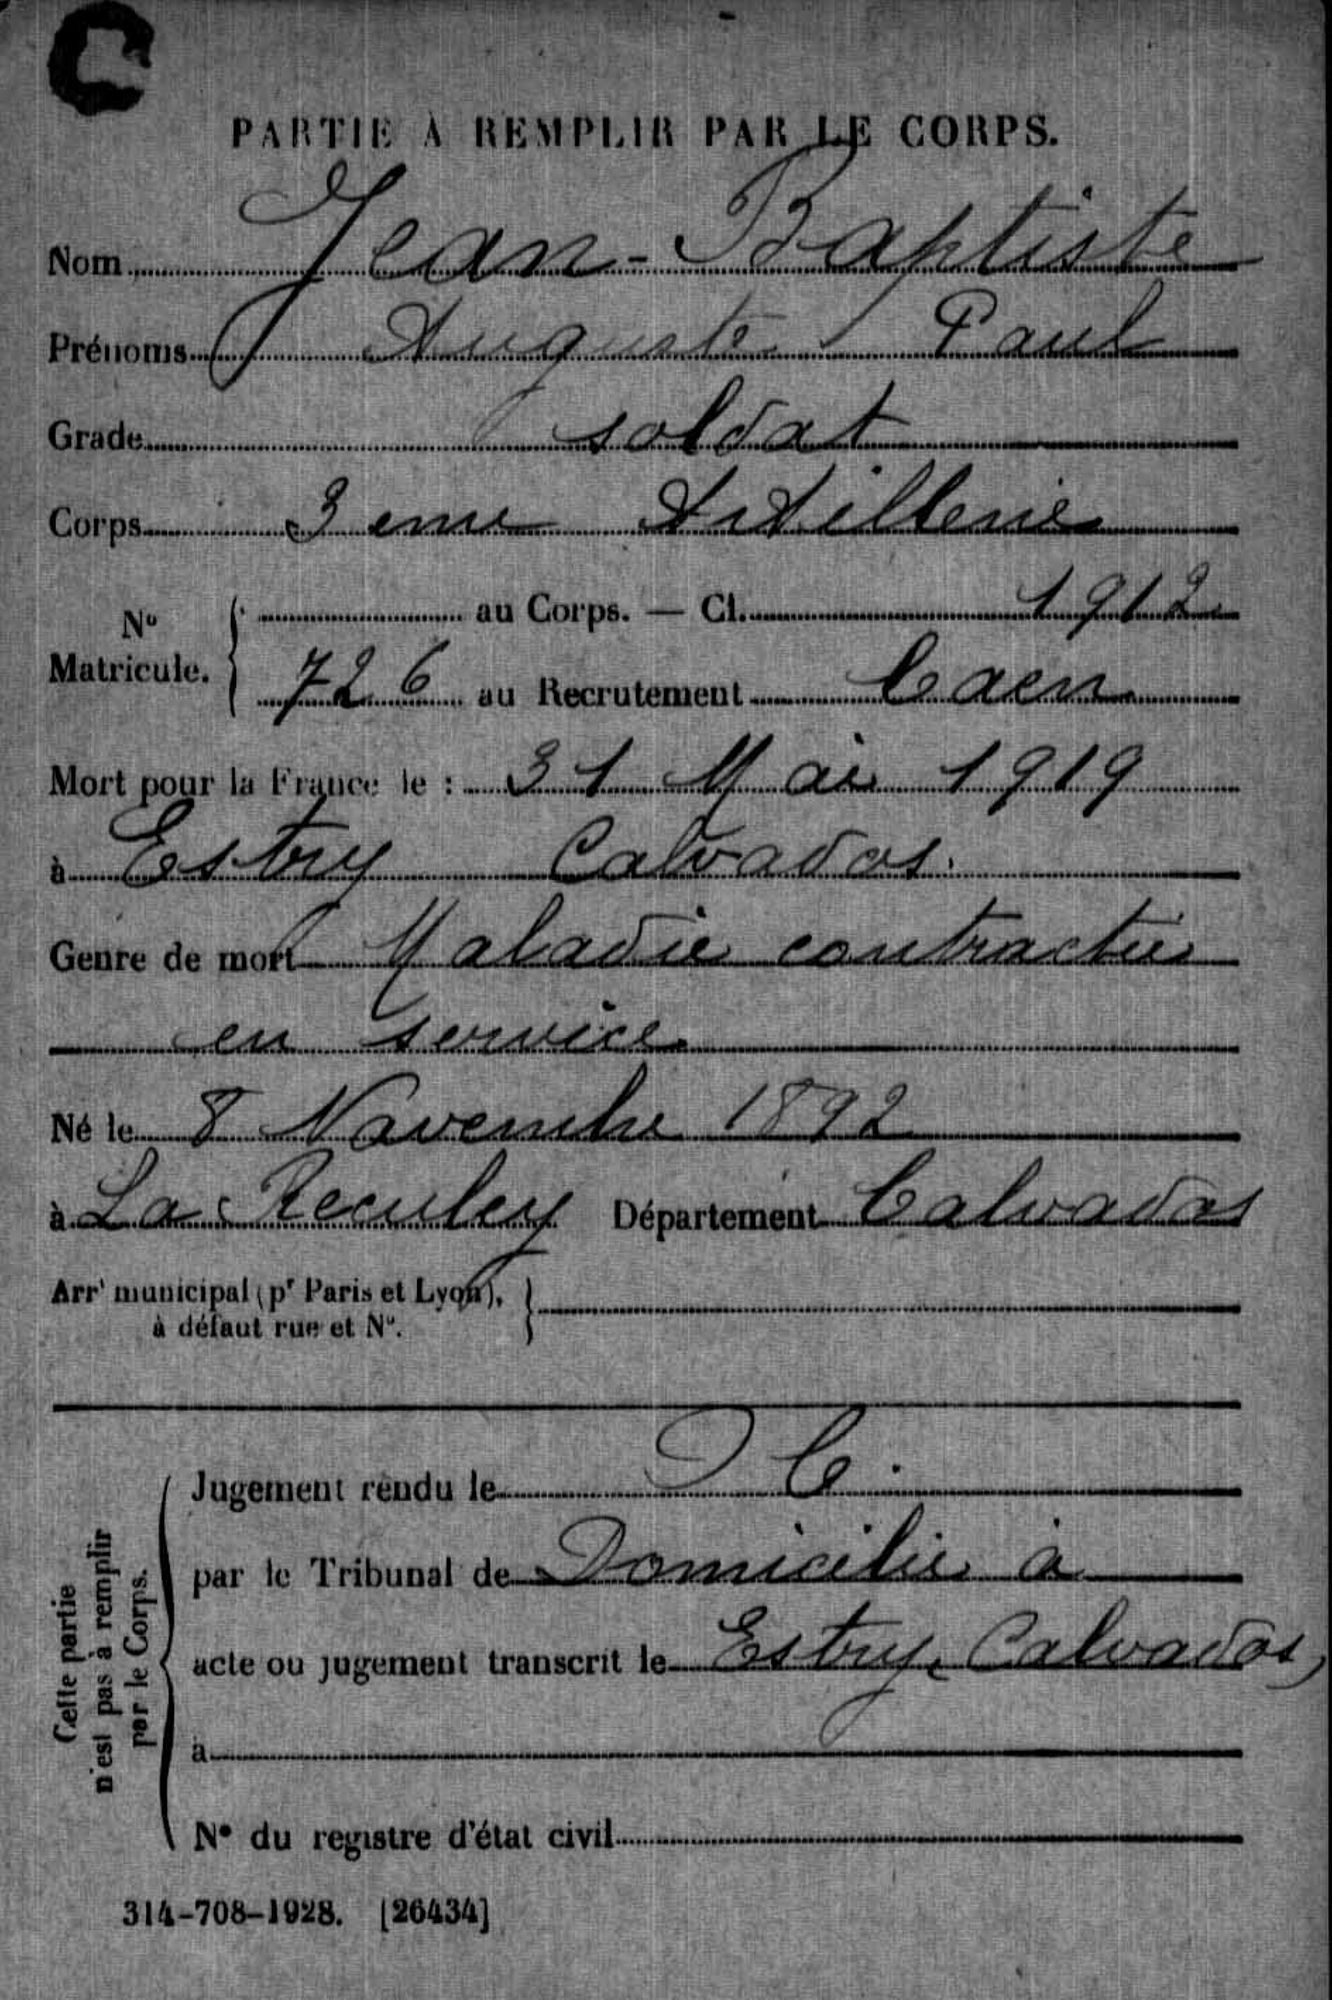 C
PARTIE À REMPLIR PAR LE CORPS.
Nom Jean-Baptiste
Prénoms Auguste Paul
Grade soldat
Corps 3 eme Artillerie
N° Matricule. { au Corps. — Cl. 1912
726 au Recrutement Caen
Mort pour la France le : 31 Mai 1919
à Estry Calvados.
Genre de mort Maladie contractée
en service
Né le 8 Novembre 1892
à La Reculey Département Calvados
Arrt municipal (pr Paris et Lyon), }
à défaut rue et N°.
Cette partie
n'est pas à remplir
par le Corps.
Jugement rendu le C.
par le Tribunal de Domicilié à
acte ou jugement transcrit le Estry, Calvados,
à
N° du registre d'état civil
314-708-1928. [26434]